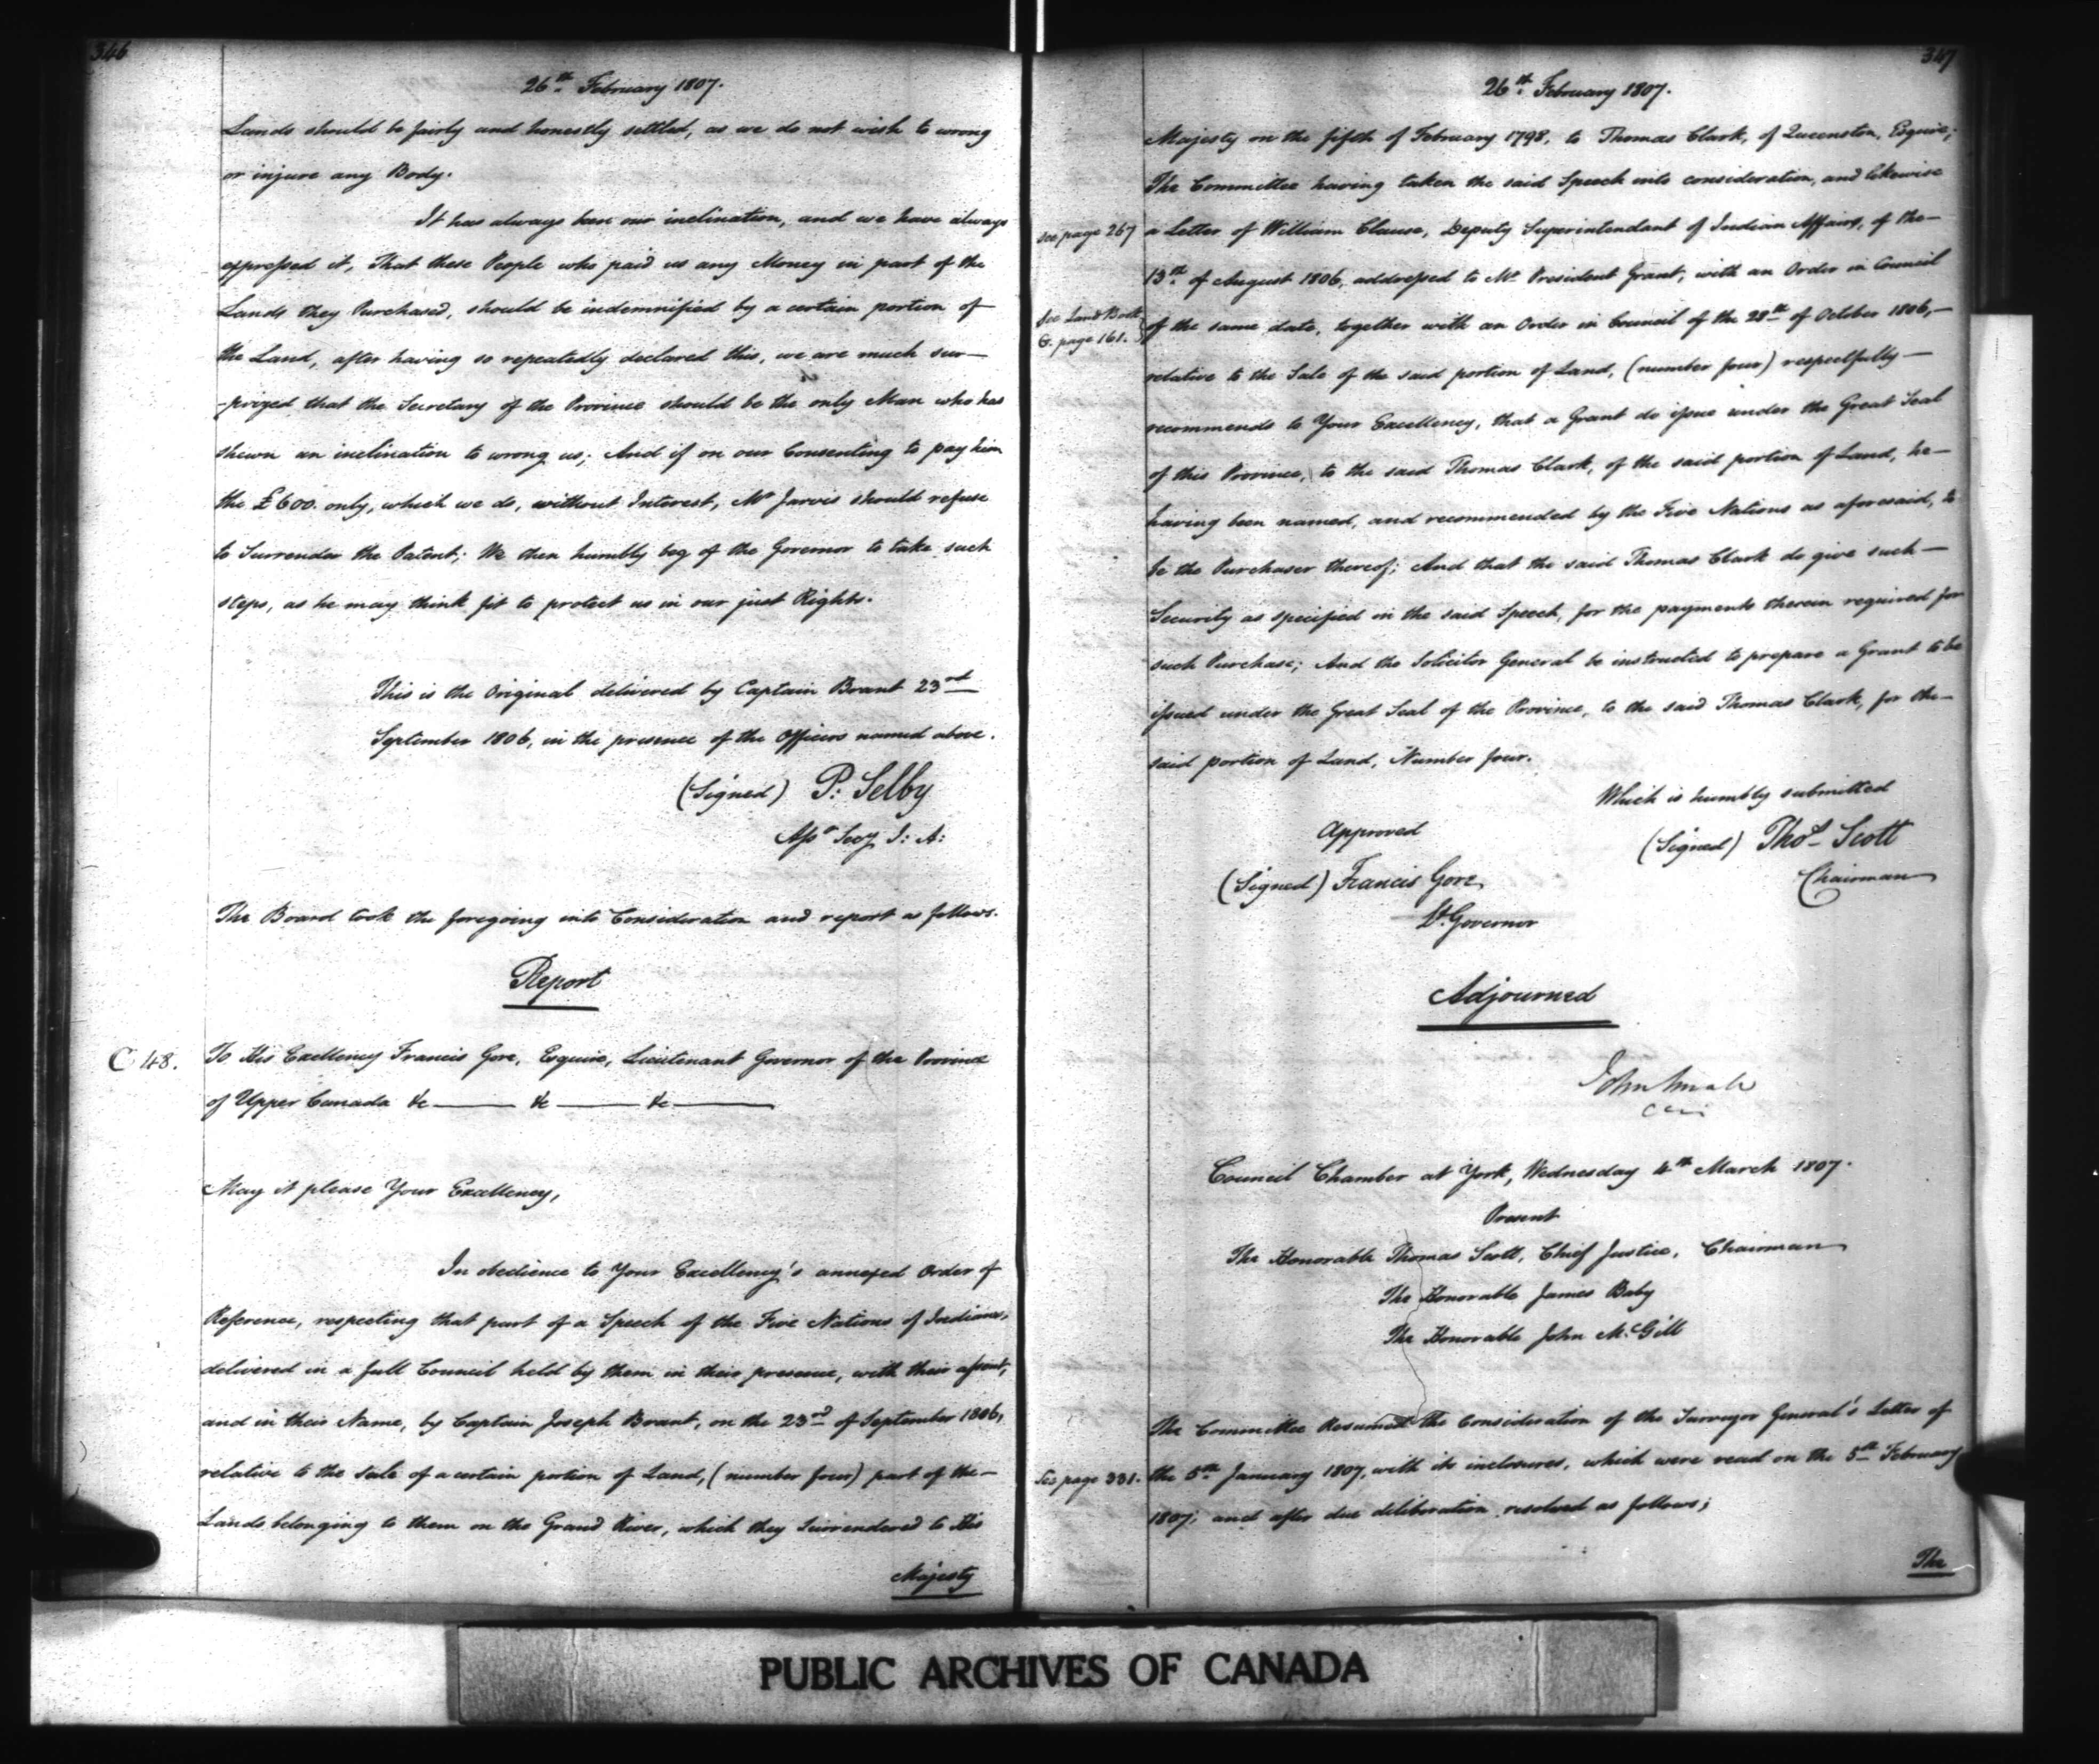 346
26th February 1807.
Lands should be fairly and honestly settled, as we do not wish to wrong
or injure any Body.
It has always been our inclination, and we have always
expressed it, That these People who paid us any Money in part of the
Lands they Purchased, should be indemnified by a certain portion of
the Land, after having so repeatedly declared this, we are much sur—
-prized that the Secretary of the Province should be the only Man who has
shewn an inclination to wrong us; And if on our Consenting to pay him
the £600. only, which we do, without Interest, Mr Jarvis should refuse
to Surrender the Patent; We then humbly beg of the Governor to take such
steps, as he may think fit to protect us in our just Rights.
This is the Original delivered by Captain Brant 23rd
September 1806, in the presence of the Officers named above.
(Signed) P: Selby
Asst Secy I: A:
The Board took the foregoing into Consideration and report as follows.
Report
C 48.
To His Excellency Francis Gore, Esquire, Lieutenant Governor of the Province
of Upper Canada &c —— &c —— &c ——
May it please Your Excellency,
In obedience to Your Excellency's annexed Order of
Reference, respecting that part of a Speech of the Five Nations of Indians,
delivered in a full Council held by them in their presence, with their assent,
and in their Name, by Captain Joseph Brant, on the 23rd of September 1806,
relative to the Sale of a certain portion of Land, (number four) part of the—
Lands belonging to them on the Grand River, which they Surrendered to His
Majesty
347
26th February 1807.
Majesty on the fifth of February 1798, to Thomas Clark, of Queenston, Esquire;
The Committee having taken the said Speech into consideration, and likewise
see page 267
a Letter of William Clause, Deputy Superintendant of Indian Affairs, of the—
13th of August 1806, addressed to Mr President Grant, with an Order in Council
See Land Book
G. page 161.
of the same date, together with an Order in Council of the 28th of October 1806,—
relative to the Sale of the said portion of Land, (number four) respectfully—
recommends to Your Excellency, that a Grant do issue under the Great Seal
of this Province, to the said Thomas Clark, of the said portion of Land, he—
having been named, and recommended by the Five Nations as aforesaid, to
be the Purchaser thereof; And that the said Thomas Clark do give such—
Security as specified in the said Speech, for the payments therein required for
such Purchase; And the Solicitor General be instructed to prepare a Grant to be
issued under the Great Seal of the Province, to the said Thomas Clark, for the—
said portion of Land, Number four.
Which is humbly submitted
Approved
(Signed) Thos Scott
Chairman
(Signed) Francis Gore
Lt. Governor
Adjourned
John Small
Council Chamber at York, Wednesday 4th March 1807.
Present
The Honorable Thomas Scott, Chief Justice, Chairman
The Honorable James Baby
The Honorable John McGill
The Committee Resumed the Consideration of the Surveyor General's Letter of
See page 331.
the 5th January 1807, with its inclosures, which were read on the 5th February
1807; and after due deliberation resolved as follows;
The
PUBLIC ARCHIVES OF CANADA